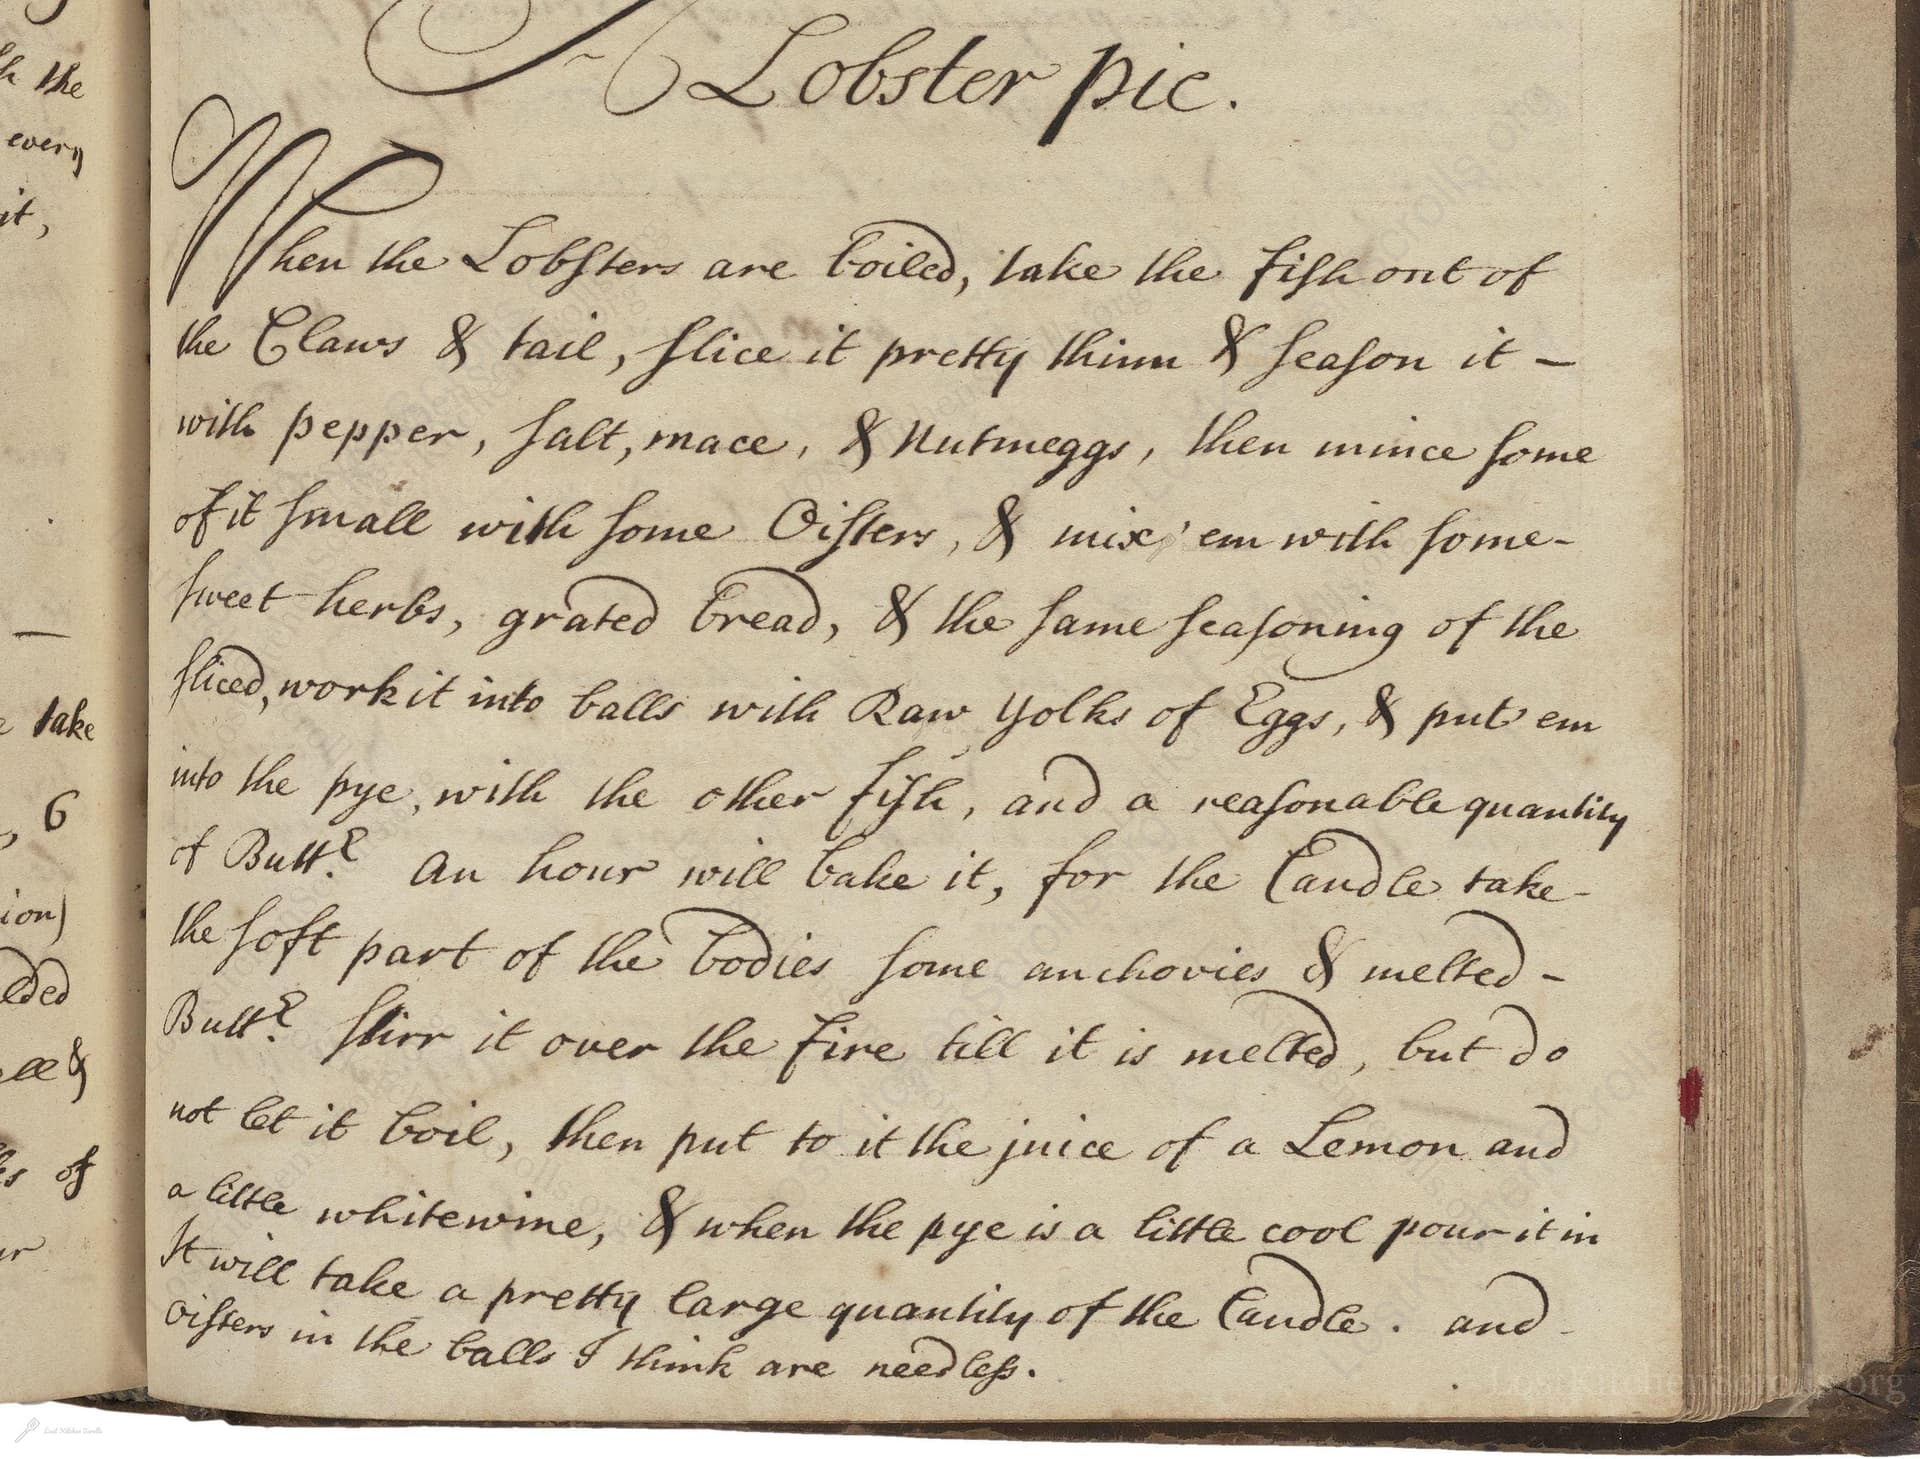 Lobster pie.
When the Lobsters are boiled, take the fish out of
the Claws & tail, slice it pretty thinn & season it –
with pepper, salt, mace, & Nutmeggs, then mince some
of it small with some Oisters, & mix 'em with some-
sweet herbs, grated bread, & the same seasoning of the
sliced, work it into balls with Raw yolks of Eggs, & put 'em
into the pye, with the other fish, and a reasonable quantity
of Buttr. An hour will bake it, for the Caudle take-
the soft part of the bodies some anchovies & melted-
Buttr. stirr it over the fire till it is melted, but do
not let it boil, then put to it the juice of a Lemon and
a little whitewine, & when the pye is a little cool pour it in
It will take a pretty large quantity of the Caudle. and-
Oisters in the balls I think are needless.
the
every
it,
—
take
, 6
of
Lost Kitchen Scrolls